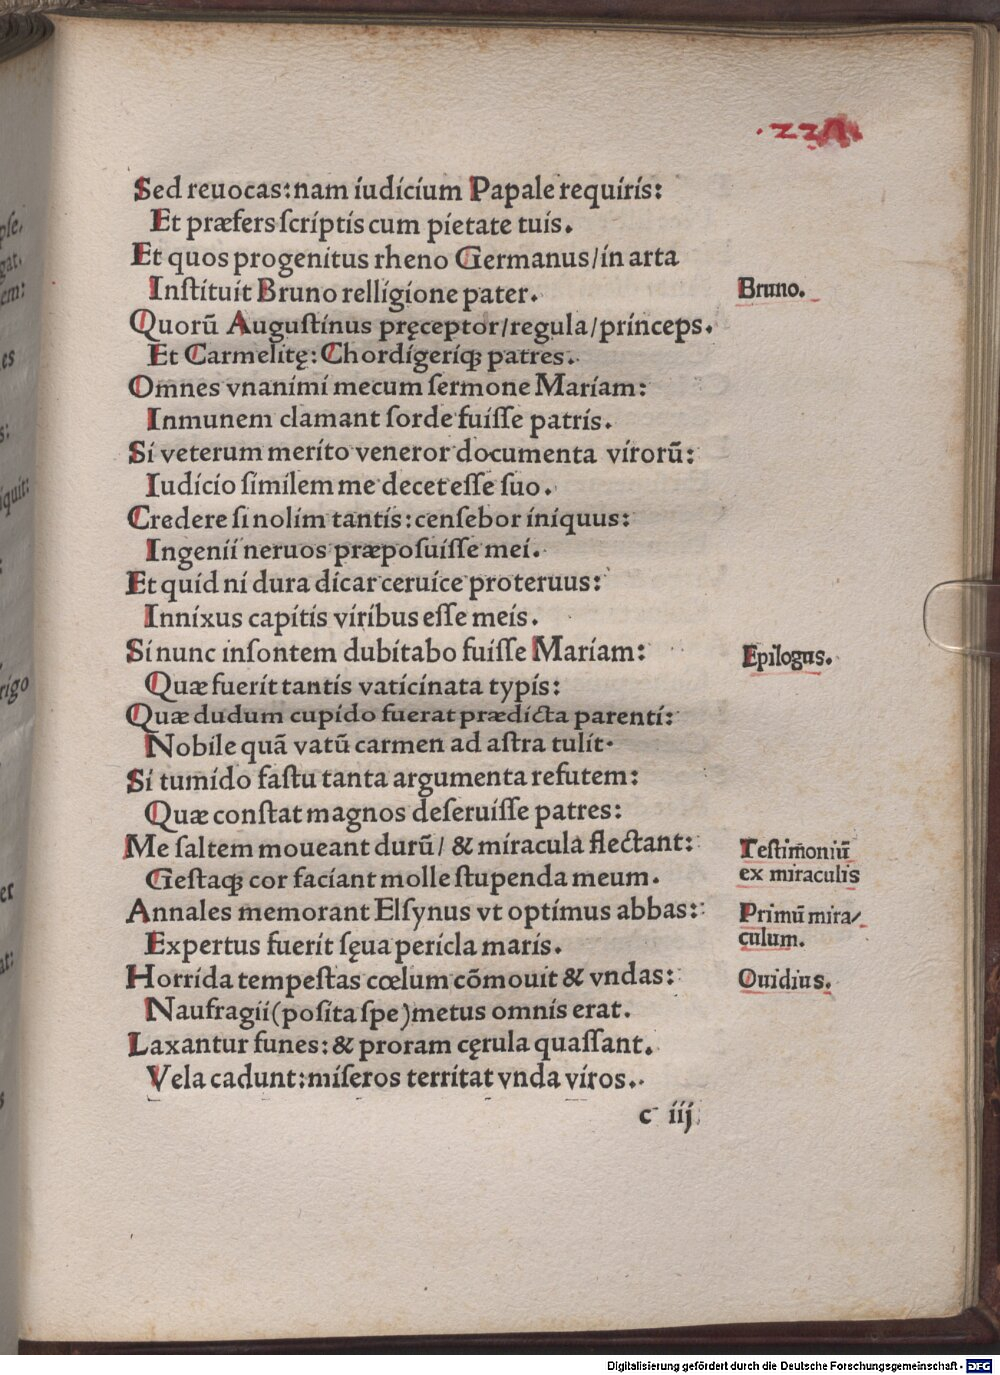 .221.
Sed reuocas: nam iudicium Papale requiris:
Et præfers ſcriptis cum pietate tuis.
Et quos progenitus rheno Germanus/in arta
Inſtituit Bruno relligione pater.
Bruno.
Quorū Auguſtinus pręceptor/regula/princeps.
Et Carmelitę: Chordigeriqꝫ patres.
Omnes vnanimi mecum ſermone Mariam:
Inmunem clamant ſorde fuiſſe patris.
Si veterum merito veneror documenta virorū:
Iudicio ſimilem me decet eſſe ſuo.
Credere ſi nolim tantis: cenſebor iniquus:
Ingenii neruos præpoſuiſſe mei.
Et quid ni dura dicar ceruice proteruus:
Innixus capitis viribus eſſe meis.
Si nunc inſontem dubitabo fuiſſe Mariam:
Epilogus.
Quæ fuerit tantis vaticinata typis:
Quæ dudum cupido fuerat prædicta parenti:
Nobile quā vatū carmen ad aſtra tulit.
Si tumido faſtu tanta argumenta refutem:
Quæ conſtat magnos deſeruiſſe patres:
Me ſaltem moueant durū/ & miracula flectant:
Teſtimoniū
Geſtaqꝫ cor faciant molle ſtupenda meum.
ex miraculis
Annales memorant Elſynus vt optimus abbas:
Primū mira/
Expertus fuerit ſęua pericla maris.
culum.
Horrida tempeſtas cœlum cōmouit & vndas:
Ouidius.
Naufragii (poſita ſpe) metus omnis erat.
Laxantur funes: & proram cęrula quaſſant.
Vela cadunt: miſeros territat vnda viros.
c iij
pſe.
gat.
em:
es
s:
iquit:
rigo
er
at:
s
Digitalisierung gefördert durch die Deutsche Forschungsgemeinschaft - DFG